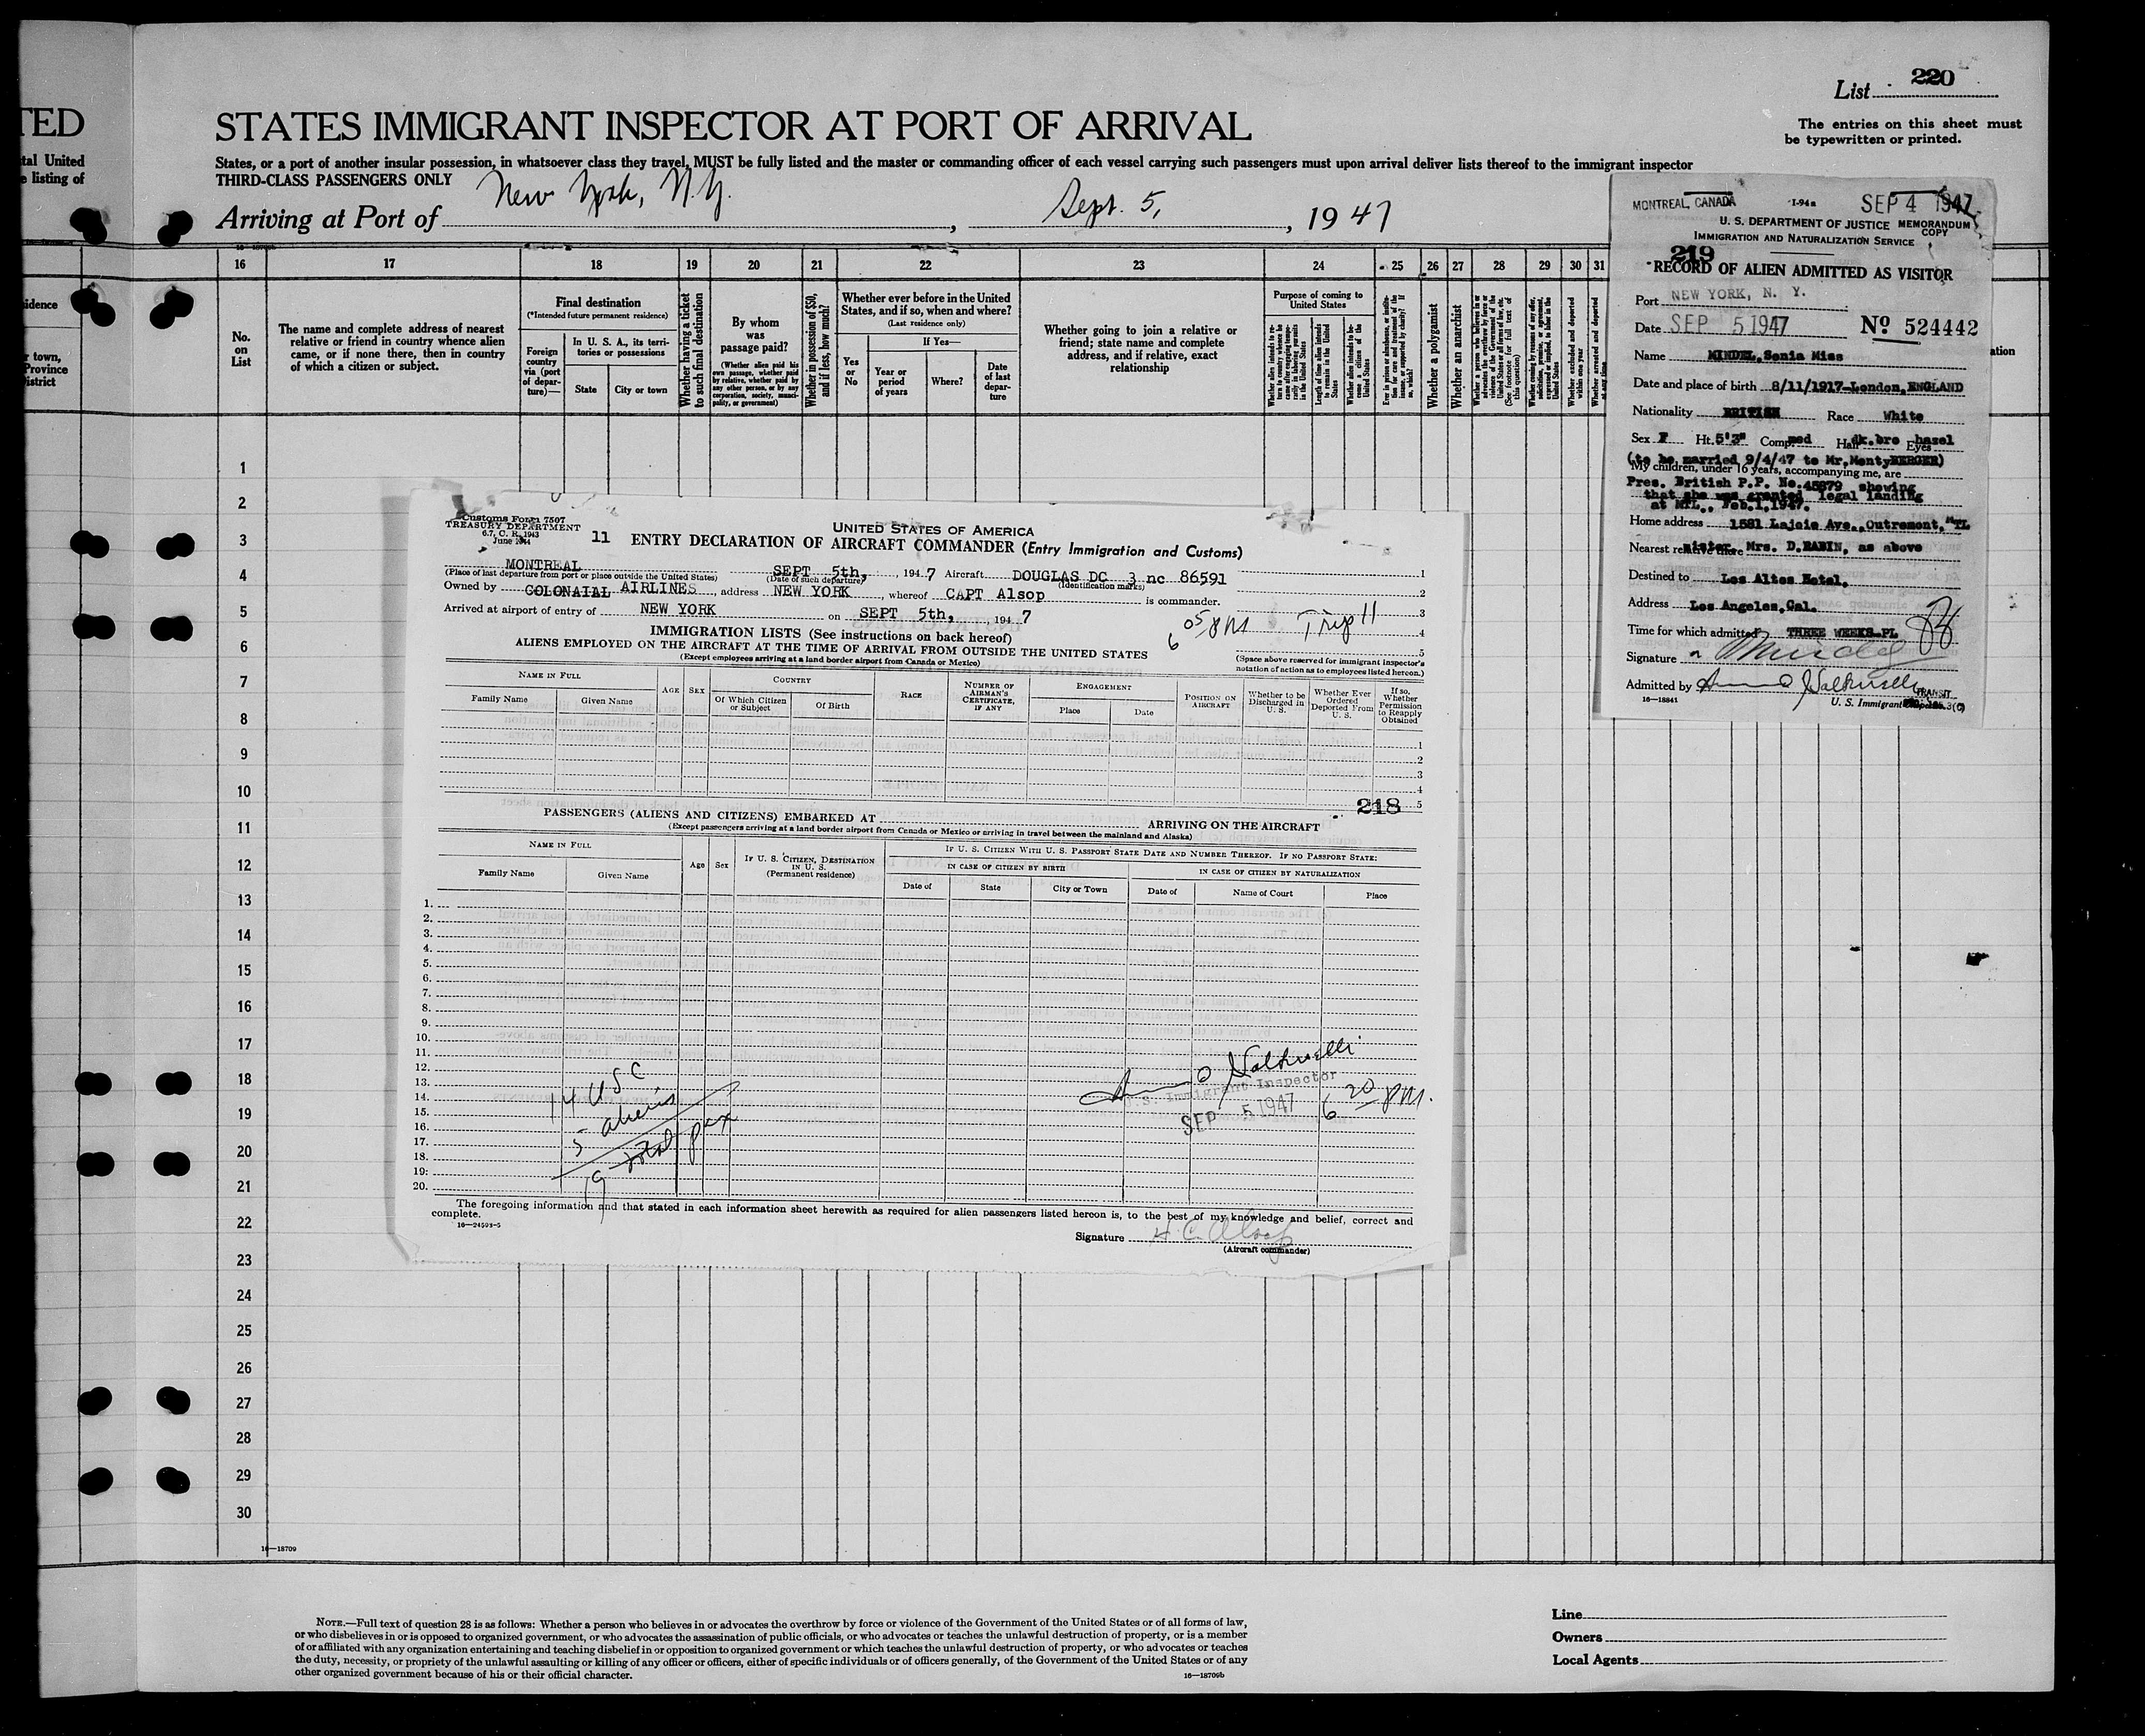 List 220
The entries on this sheet must
be typewritten or printed.
TED
STATES IMMIGRANT INSPECTOR AT PORT OF ARRIVAL
tal United
e listing of
States, or a port of another insular possession, in whatsoever class they travel, MUST be fully listed and the master or commanding officer of each vessel carrying such passengers must upon arrival deliver lists thereof to the immigrant inspector
THIRD-CLASS PASSENGERS ONLY
Arriving at Port of New York, N.Y. , Sept. 5, , 1947
16 17 18 19 20 21 22 23 24 25 26 27 28 29 30 31
idence
r town,
Province
istrict
No.
on
List
The name and complete address of nearest
relative or friend in country whence alien
came, or if none there, then in country
of which a citizen or subject.
Final destination
(*Intended future permanent residence)
Foreign
country
via (port
of depar-
ture)—
In U. S. A., its terri-
tories or possessions
State
City or town
Whether having a ticket
to such final destination
By whom
was
passage paid?
(Whether alien paid his
own passage, whether paid
by relative, whether paid by
any other person, or by any
corporation, society, munici-
pality, or government)
Whether in possession of $50,
and if less, how much?
Whether ever before in the United
States, and if so, when and where?
(Last residence only)
Yes
or
No
If Yes—
Year or
period
of years
Where?
Date
of last
depar-
ture
Whether going to join a relative or
friend; state name and complete
address, and if relative, exact
relationship
Purpose of coming to
United States
Length of time alien intends
to remain in the United
States
Whether a polygamist
Whether an anarchist
Whether excluded and deported
within one year
Whether arrested and deported
at any time
ation
1
2
3
4
5
6
7
8
9
10
11
12
13
14
15
16
17
18
19
20
21
22
23
24
25
26
27
28
29
30
16—18709
MONTREAL, CANADA I-94a SEP 4 1947
U. S. DEPARTMENT OF JUSTICE MEMORANDUM
COPY
IMMIGRATION AND NATURALIZATION SERVICE
219
RECORD OF ALIEN ADMITTED AS VISITOR
Port NEW YORK, N. Y.
Date SEP 5 1947 No 524442
Name MINDEL, Sonia Miss
Date and place of birth 8/11/1917-London, ENGLAND
Nationality BRITISH Race White
Sex F Ht. 5'3" Comp. med Hair dk.bro Eyes hazel
(to be married 9/4/47 to Mr, Monty BERGER)
My children, under 16 years, accompanying me, are
Pres. British P.P. No. 45879 showing
that she was granted legal landing
at MTL., Feb.1,1947.
Home address 1581 Lajoie Ave., Outremont, MTL
Nearest relative there sister, Mrs. D. RABIN, as above
Destined to Los Altos Hotel,
Address Los Angeles, Cal.
Time for which admitted THREE WEEKS-PL
Signature
Admitted by
TRANSIT
16—18841 U. S. Immigrant Inspector. 3(C)
Customs Form 7507
TREASURY DEPARTMENT
6.7, C. R. 1943
June 1944
11
UNITED STATES OF AMERICA
ENTRY DECLARATION OF AIRCRAFT COMMANDER (Entry Immigration and Customs)
MONTREAL SEPT 5th, , 1947 Aircraft DOUGLAS DC 3 nc 86591 1
(Place of last departure from port or place outside the United States) (Date of such departure) (Identification marks)
Owned by COLONAIAL AIRLINES , address NEW YORK , whereof CAPT Alsop is commander. 2
Arrived at airport of entry of NEW YORK on SEPT 5th, , 1947 3
6 05 PM Trip 11 4
5
IMMIGRATION LISTS (See instructions on back hereof)
ALIENS EMPLOYED ON THE AIRCRAFT AT THE TIME OF ARRIVAL FROM OUTSIDE THE UNITED STATES
(Except employees arriving at a land border airport from Canada or Mexico)
(Space above reserved for immigrant inspector's
notation of action as to employees listed hereon.)
NAME IN FULL
Family Name
Given Name
AGE
SEX
COUNTRY
Of Which Citizen
or Subject
Of Birth
RACE
NUMBER OF
AIRMAN'S
CERTIFICATE,
IF ANY
ENGAGEMENT
Place
Date
POSITION ON
AIRCRAFT
Whether to be
Discharged in
U. S.
Whether Ever
Ordered
Deported From
U. S.
If so,
Whether
Permission
to Reapply
Obtained
1
2
3
4
5
218
PASSENGERS (ALIENS AND CITIZENS) EMBARKED AT ARRIVING ON THE AIRCRAFT
(Except passengers arriving at a land border airport from Canada or Mexico or arriving in travel between the mainland and Alaska)
NAME IN FULL
Family Name
Given Name
Age
Sex
IF U. S. CITIZEN, DESTINATION
IN U. S.
(Permanent residence)
IF U. S. CITIZEN WITH U. S. PASSPORT STATE DATE AND NUMBER THEREOF. IF NO PASSPORT STATE:
IN CASE OF CITIZEN BY BIRTH
IN CASE OF CITIZEN BY NATURALIZATION
Date of
State
City or Town
Date of
Name of Court
Place
1.
2.
3.
4.
5.
6.
7.
8.
9.
10.
11.
12.
13.
14.
15.
16.
17.
18.
19.
20.
14 USC
5 aliens
19 total pax
U.S. Immigrant Inspector
SEP 5 1947 6 20 PM.
The foregoing information and that stated in each information sheet herewith as required for alien passengers listed hereon is, to the best of my knowledge and belief, correct and
complete.
16—24593-5
Signature H C Alsop
(Aircraft commander)
NOTE.—Full text of question 28 is as follows: Whether a person who believes in or advocates the overthrow by force or violence of the Government of the United States or of all forms of law,
or who disbelieves in or is opposed to organized government, or who advocates the assassination of public officials, or who advocates or teaches the unlawful destruction of property, or is a member
of or affiliated with any organization entertaining and teaching disbelief in or opposition to organized government or which teaches the unlawful destruction of property, or who advocates or teaches
the duty, necessity, or propriety of the unlawful assaulting or killing of any officer or officers, either of specific individuals or of officers generally, of the Government of the United States or of any
other organized government because of his or their official character.
16—18709b
Line
Owners
Local Agents